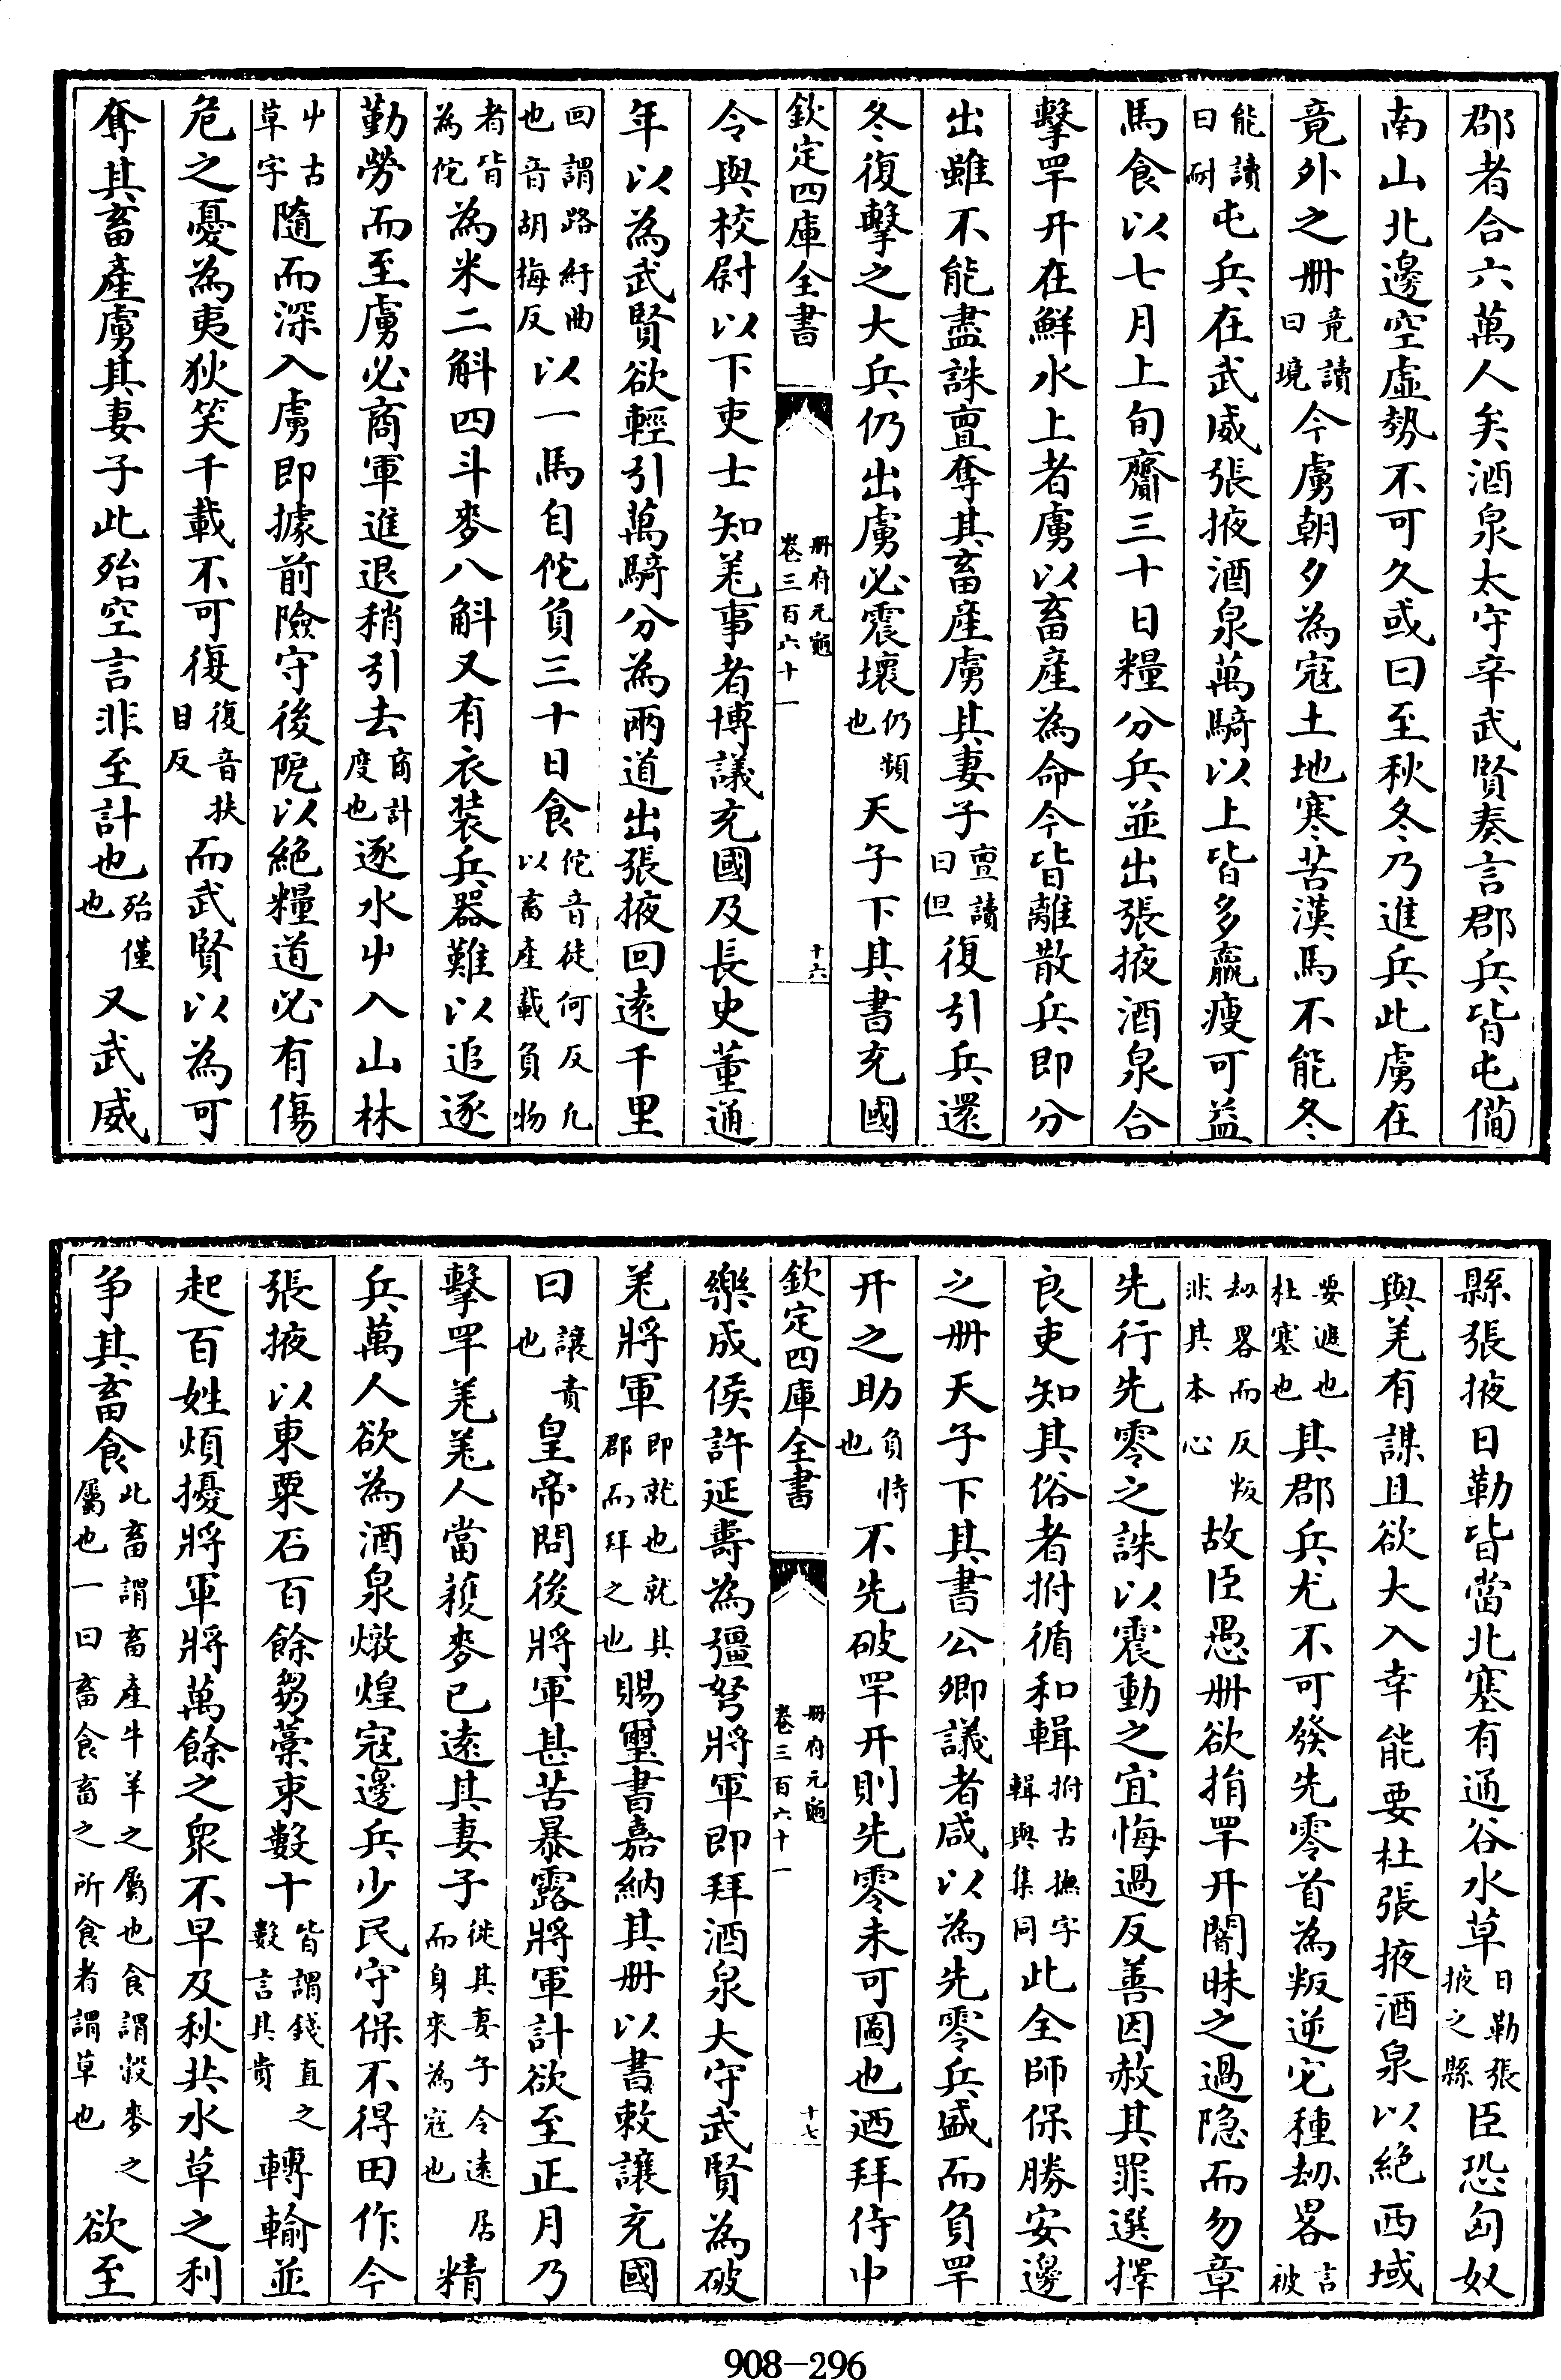 郡者合六萬人矣酒泉太守辛武賢奏言郡兵皆屯備
南山北邊空虛勢不可久或曰至秋冬乃進兵此虜在
竟外之册竟讀曰境今虜朝夕為寇土地寒苦漢馬不能冬
能讀曰耐屯兵在武威張掖酒泉萬騎以上皆多羸瘦可益
馬食以七月上旬齎三十日糧分兵並出張掖酒泉合
擊罕幵在鮮水上者虜以畜產為命今皆離散兵即分
出雖不能盡誅亶奪其畜產虜其妻子亶讀曰但復引兵還
冬復擊之大兵仍出虜必震壞仍頻也天子下其書充國
欽定四庫全書
册府元龜
卷三百六十一
十六
令與校尉以下吏士知羌事者博議充國及長史董通
年以為武賢欲輕引萬騎分為兩道出張掖回遠千里
回謂路紆曲也音胡梅反以一馬自佗負三十日食佗音徒何反凡以畜產載負物
者皆為佗為米二斛四斗麥八斛又有衣裝兵器難以追逐
勤勞而至虜必商軍進退稍引去商計度也逐水屮入山林
屮古草字隨而深入虜即據前險守後阸以絶糧道必有傷
危之憂為夷狄笑千載不可復復音扶目反而武賢以為可
奪其畜產虜其妻子此殆空言非至計也殆僅也又武威
縣張掖日勒皆當北塞有通谷水草日勒張掖之縣臣恐匈奴
與羌有謀且欲大入幸能要杜張掖酒泉以絶西域
要遮也杜塞也其郡兵尤不可發先零首為叛逆它種劫畧言被
劫畧而反叛非其本心故臣愚册欲捐罕幵闇昧之過隐而勿章
先行先零之誅以震動之宜悔過反善因赦其罪選擇
良吏知其俗者拊循和輯拊古撫字輯與集同此全師保勝安邊
之册天子下其書公卿議者咸以為先零兵盛而負罕
幵之助負恃也不先破罕幵則先零未可圖也迺拜侍中
欽定四庫全書
册府元龜
卷三百六十一
十七
樂成侯許延壽為彊弩將軍即拜酒泉大守武賢為破
羌將軍即就也就其郡而拜之也賜璽書嘉納其册以書敕讓充國
曰讓責也皇帝問後將軍甚苦暴露將軍計欲至正月乃
擊罕羌羌人當穫麥已遠其妻子徙其妻子令遠居而身來為寇也精
兵萬人欲為酒泉燉煌寇邊兵少民守保不得田作今
張掖以東粟石百餘芻藁束數十皆謂錢直之數言其貴轉輸並
起百姓煩擾將軍將萬餘之衆不早及秋共水草之利
争其畜食此畜謂畜產牛羊之屬也食謂穀麥之屬也一曰畜食畜之所食者謂草也欲至
908-296